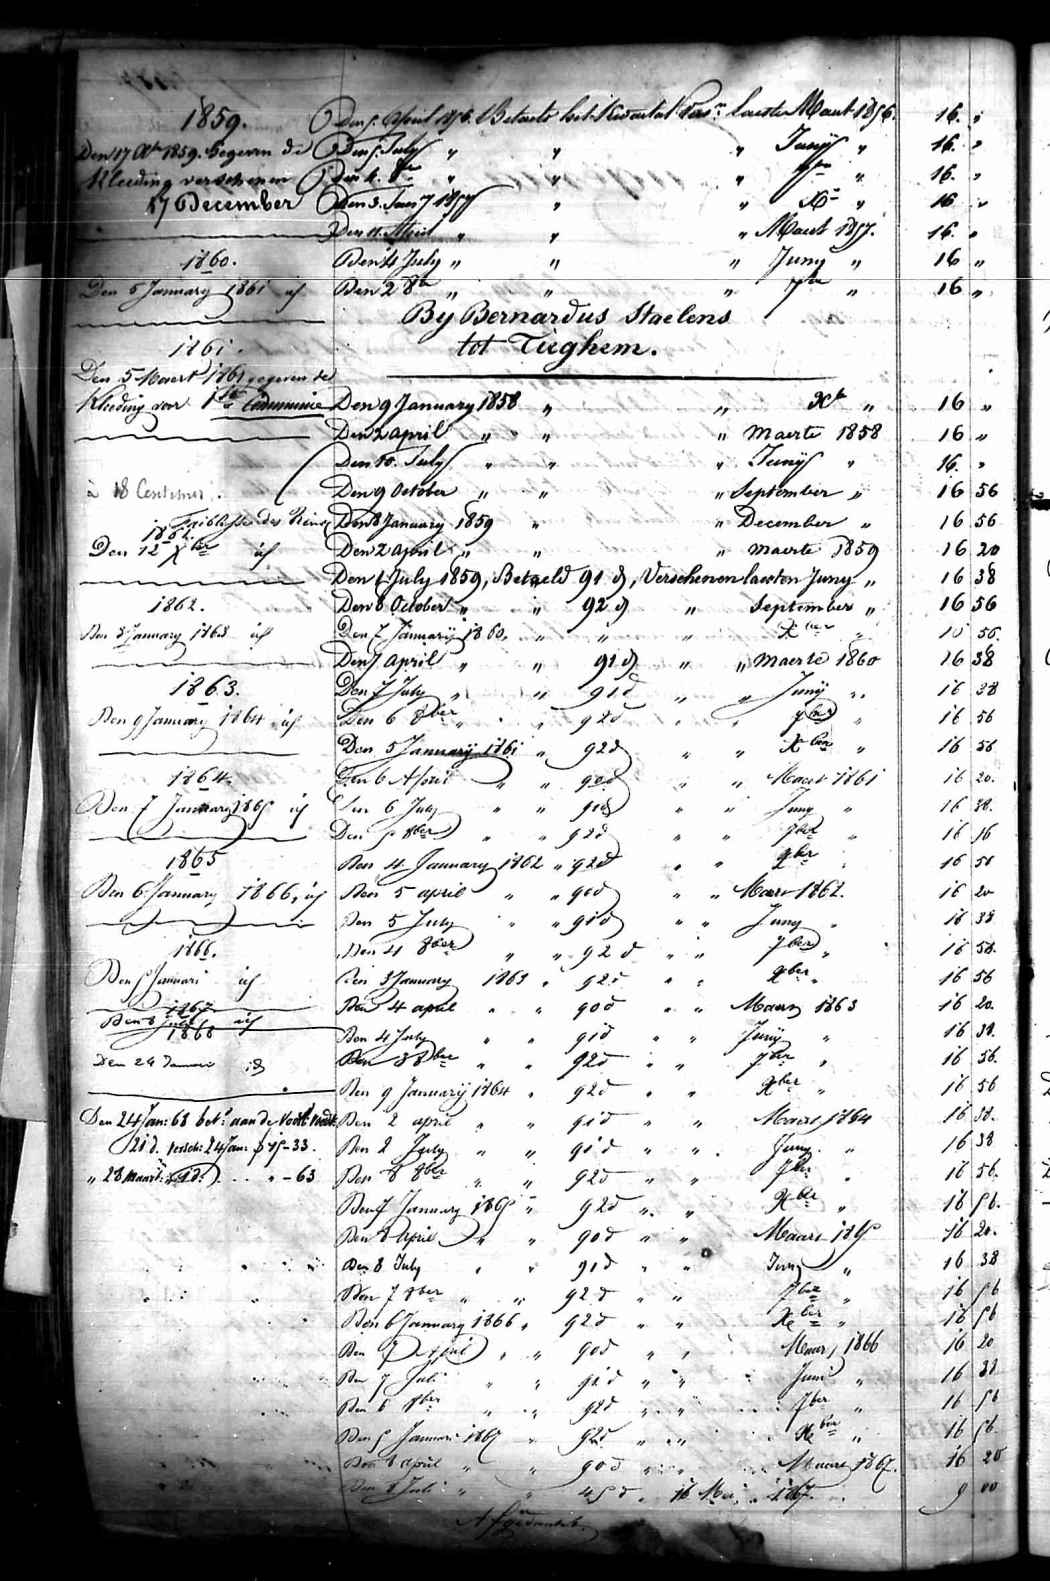 1859.
Den 17 8br 1859. Gegeven de
Kleeding verschenen
17 December
1860.
Den 5 January 1861 id
1861.
Den 5 Maert 1861 gegeven de
Kleeding voor 1ste Communie
à 18 Centimes.
1861.
Den 12 Xber id
1862.
Den 3 January 1863 id
1863.
Den 9 January 1864 id
1864.
Den 7 January 1865 id
1865
Den 6 January 1866, id
1866.
Den 5 Januari id
1867
Den 8 Juli id
1868
Den 24 Januari id
Den 24 Jan: 68 bet: aan de
21 d. versch: 24 Jan: f 15-33.
" 28 Maart: 1 d. . . . " - 63
Den 5 April 1856. Betaelt het Kwartal vers. laeste Maart 1856. 16. "
Den 5 July " " " Junÿ " 16. "
Den 4. 8br " " " 7br " 16. "
Den 3. Jan 1857 " " Xr " 16 "
Den 11. April " " " Maert 1857. 16. "
Den 4 July " " " Juny " 16 "
Den 2 8br " " " 7br " 16 "
By Bernardus Staelens
tot Tieghem.
Den 9 January 1858 " " Xbr " 16 "
Den 2 april " " " maerte 1858 16 "
Den 10. July " " " Junÿ " 16. "
Den 9 October " " " September " 16 56
Den 8 January 1859 " " December " 16 56
Den 2 april " " " maerte 1859 16 20
Den 1 July 1859, Betaeld 91 d, Verschenen laesten Juny " 16 38
Den 8 October " " 92 d " September " 16 56
Den 7 Januarÿ 1860. " " " Xber " 16 56.
Den 7 april " " 91 d " " maerte 1860 16 38
Den 7 July " " 91 d " " Junÿ " 16 38
Den 6 8ber " " 92 d " " 7ber " 16 56
Den 5 January 1861 " 92 d " " Xber " 16 56
Den 6 April " " 90 d " " Maert 1861 16 20.
Den 6 July " " 91 d " " Juny " 16 38.
Den 5 8ber " " 92 d " " 7ber " 16 56
Den 4 January 1862 " 92 d " " Xber " 16 56
Den 5 april " " 90 d " " Maert 1862. 16 20
Den 5 July " " 91 d " " Juny " 16 38
Den 4 8ber " " 92 d " " 7ber " 16 56.
Den 3 January 1863 " 92 d " " Xber " 16 56
Den 4 april " " 90 d " " Maart 1863 16 20.
Den 4 July " " 91 d " " Junÿ " 16 38.
Den 3 8ber " " 92 d " " 7ber " 16 56.
Den 9 Januarÿ 1864 " 92 d " " Xber " 16 56
Den 2 april " " 91 d " " Maart 1864 16 38.
Den 2 July " " 91 d " " Juny " 16 38
Den 8 8ber " " 92 d " " 7ber " 16 56.
Den 7 January 1865 " 92 d " " Xber " 16 56.
Den 8 April " " 90 d " " Maart 1865 16 20.
Den 8 July " " 91 d " " Juny " 16 38
Den 7 8ber " " 92 d " " 7ber " 16 56
Den 6 January 1866 " 92 d " " Xber " 16 56
Den 7 April " " 90 d " " Maart 1866 16 20
Den 7 Juli " " 91 d " " Juni " 16 38
Den 6 8ber " " 92 d " " 7ber " 16 56
Den 5 Januari 1867 " 92 d " " Xber " 16 56.
Den 6 april " " 90 d " " Maart 1867. 16 20
Den 8 Juli " " 45 d " 16 Mei " 1867. 9 00
Afgedankt.